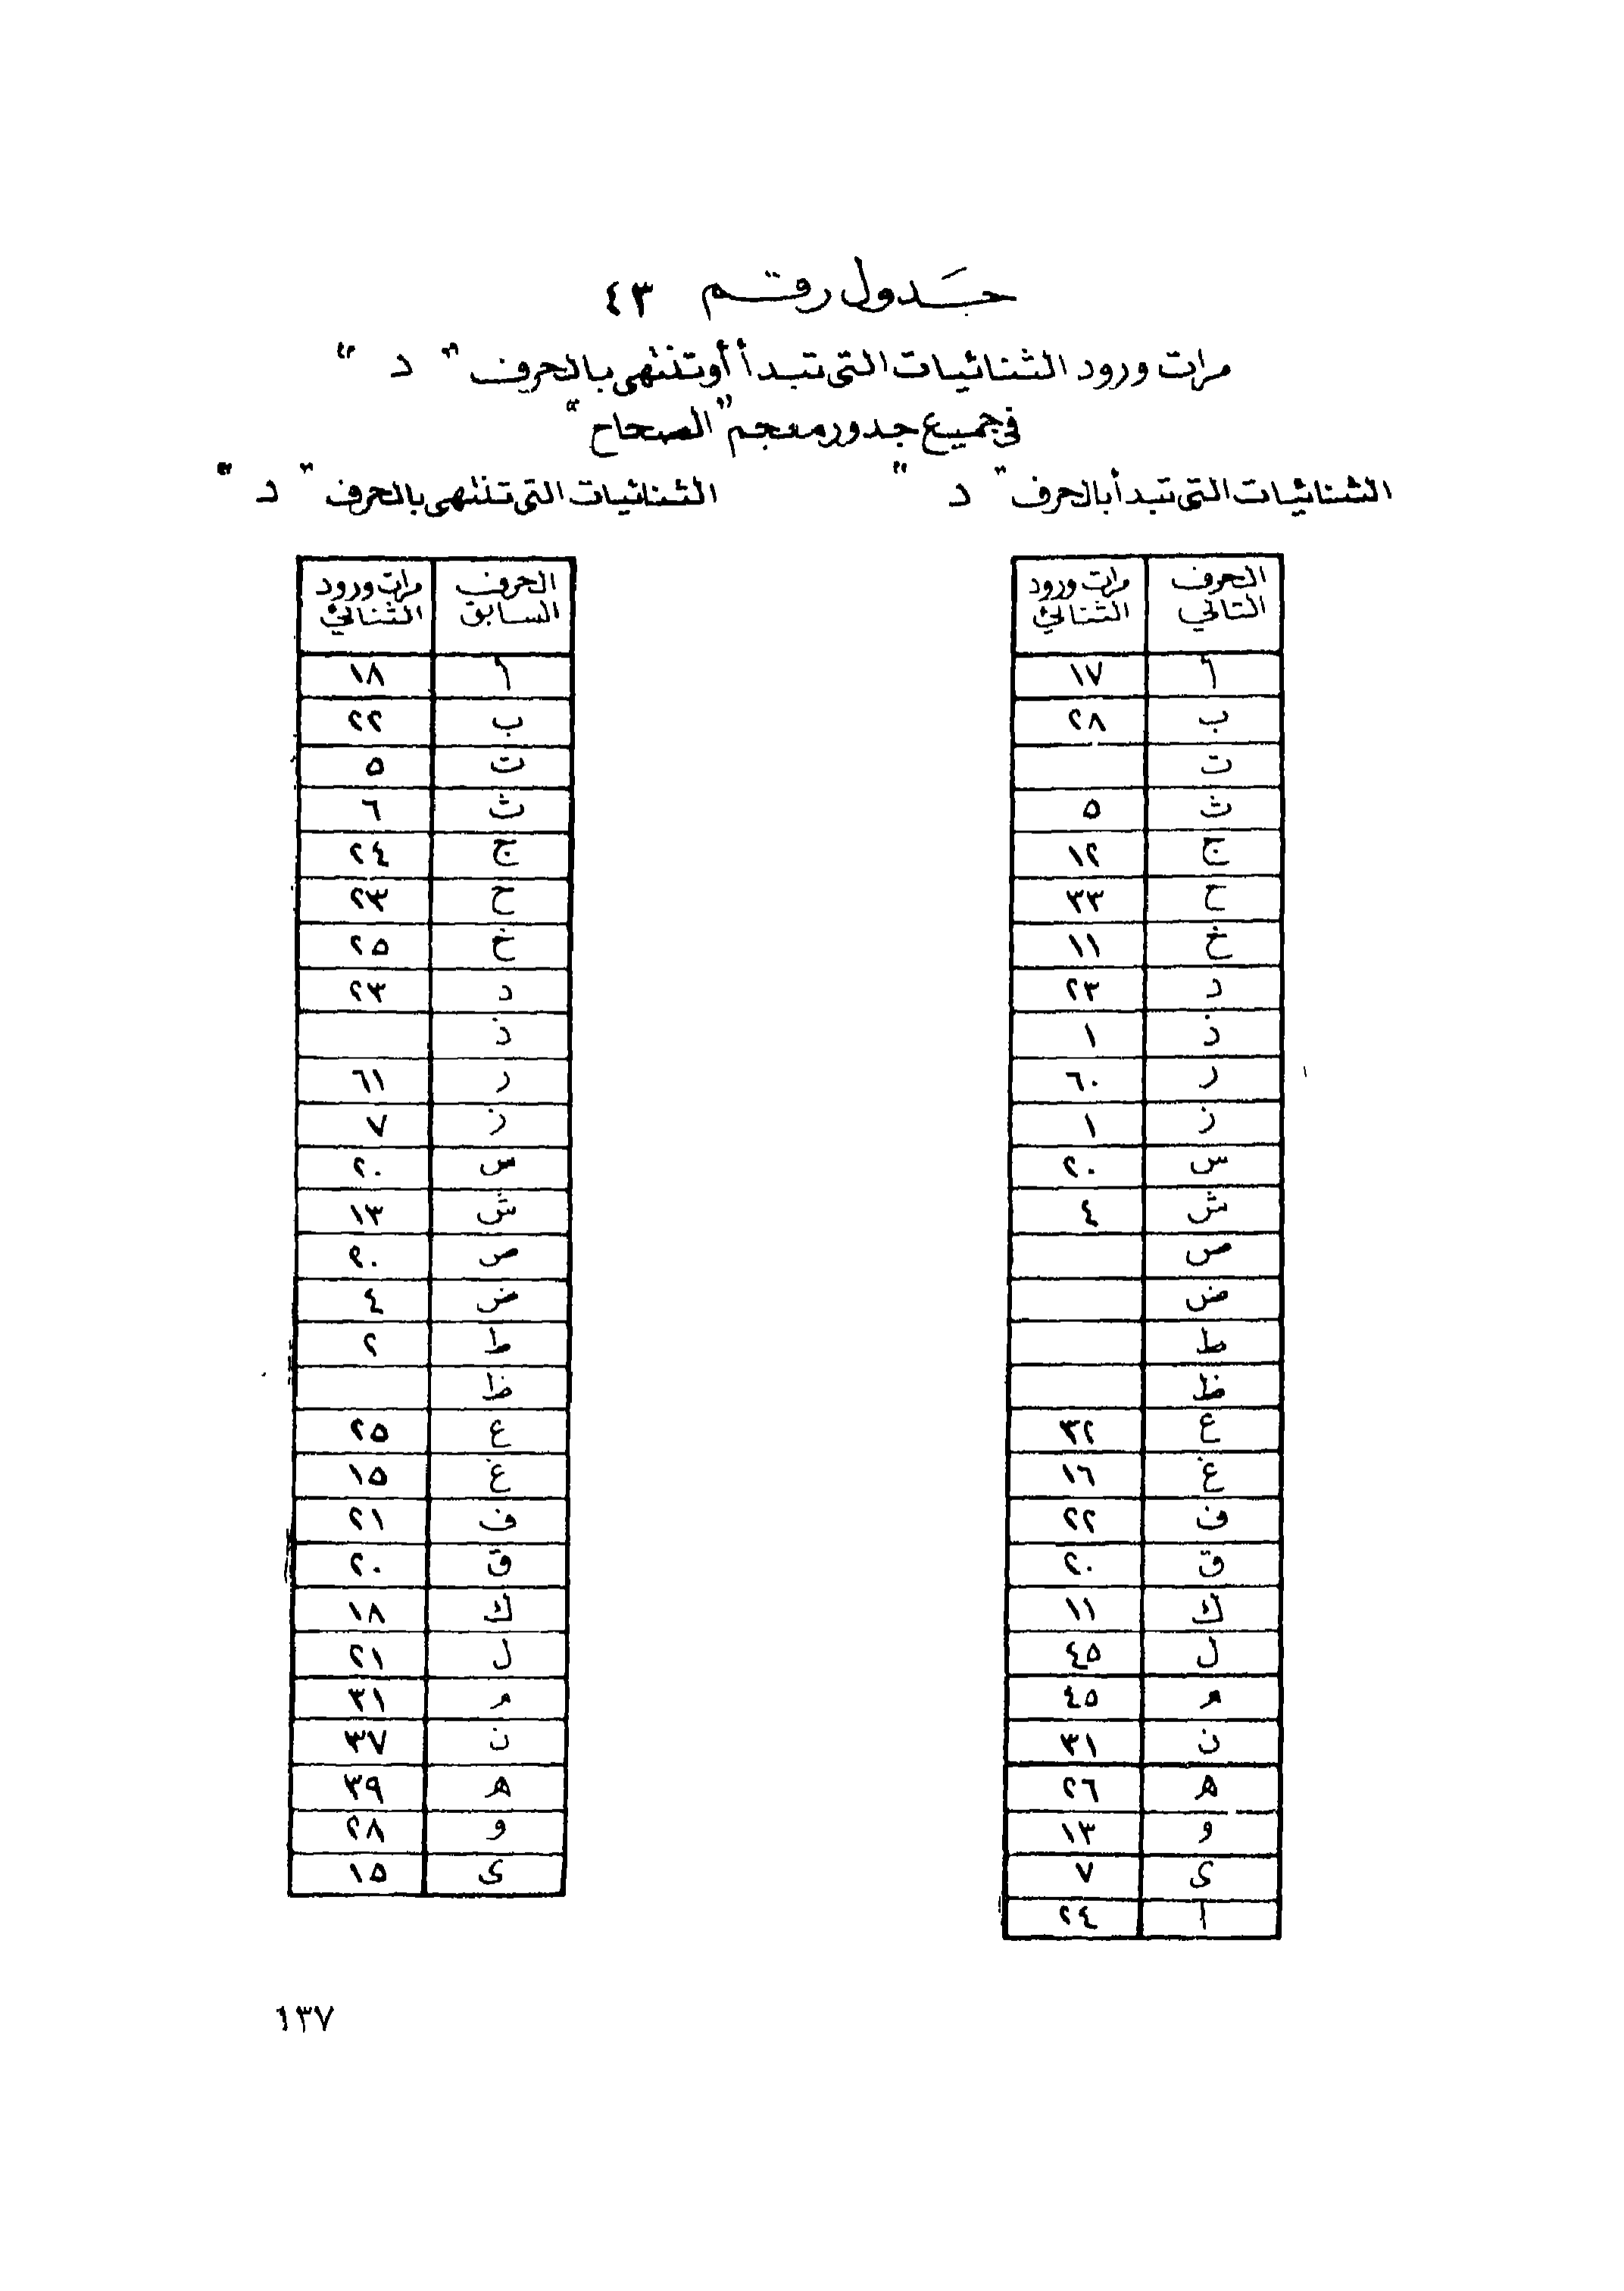 جدول رقم ٤٣
مرات ورود الثنائيات التى تبدأ أو تنتهى بالحرف " د "
فى جميع جدور معجم "الصحاح"
الثنائيات التى تبدأ بالحرف " د "
الحرف التالي	مرات ورود الثنائي
أ	١٧
ب	٢٨
ت
ث	٥
ج	١٢
ح	٣٣
خ	١١
د	٢٣
ذ	١
ر	٦٠
ز	١
س	٢٠
ش	٤
ص
ض
ط
ظ
ع	٣٢
غ	١٦
ف	٢٢
ق	٢٠
ك	١١
ل	٤٥
م	٤٥
ن	٣١
ه	٢٦
و	١٣
ى	٧
ا	٢٤
الثنائيات التى تنتهى بالحرف " د "
الحرف السابق	مرات ورود الثنائي
أ	١٨
ب	٢٢
ت	٥
ث	٦
ج	٢٤
ح	٢٣
خ	٢٥
د	٢٣
ذ
ر	٦١
ز	٧
س	٢٠
ش	١٣
ص	٢٠
ض	٤
ط	٢
ظ
ع	٢٥
غ	١٥
ف	٢١
ق	٢٠
ك	١٨
ل	٢١
م	٣١
ن	٣٧
ه	٣٩
و	٢٨
ى	١٥
١٣٧